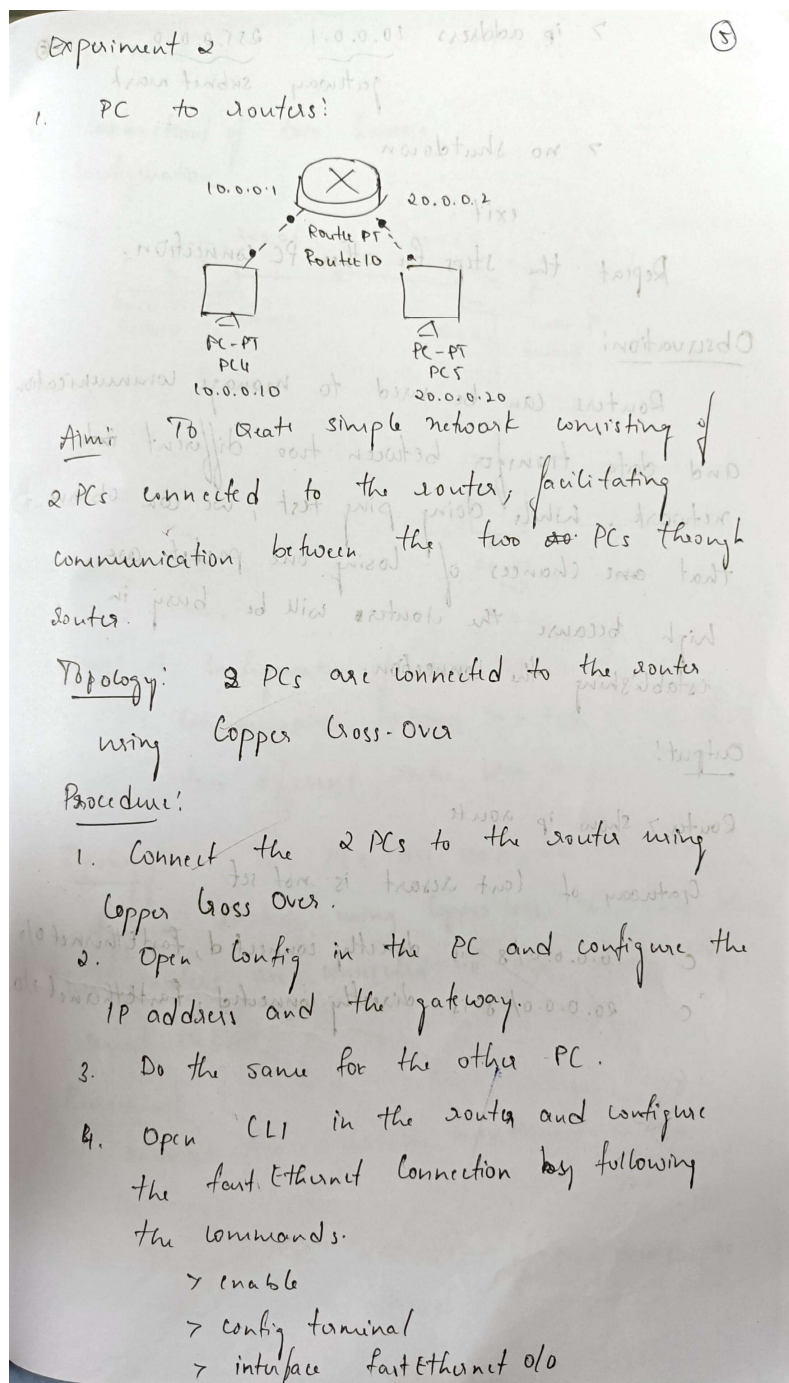 Experiment 2
5
1. PC to routers:
10.0.0.1
20.0.0.2
Router PT
Router 10
PC-PT
PC4
10.0.0.10
PC-PT
PC5
20.0.0.20
Aim: To create simple network consisting of
2 PCs connected to the router, facilitating
communication between the two PCs through
router.
Topology: 2 PCs are connected to the router
using Copper Cross-Over
Procedure:
1. Connect the 2 PCs to the router using
Copper Cross Over.
2. Open Config in the PC and configure the
IP address and the gateway.
3. Do the same for the other PC.
4. Open CLI in the router and configure
the fast Ethernet Connection by following
the commands.
> enable
> config terminal
> interface fastEthernet 0/0